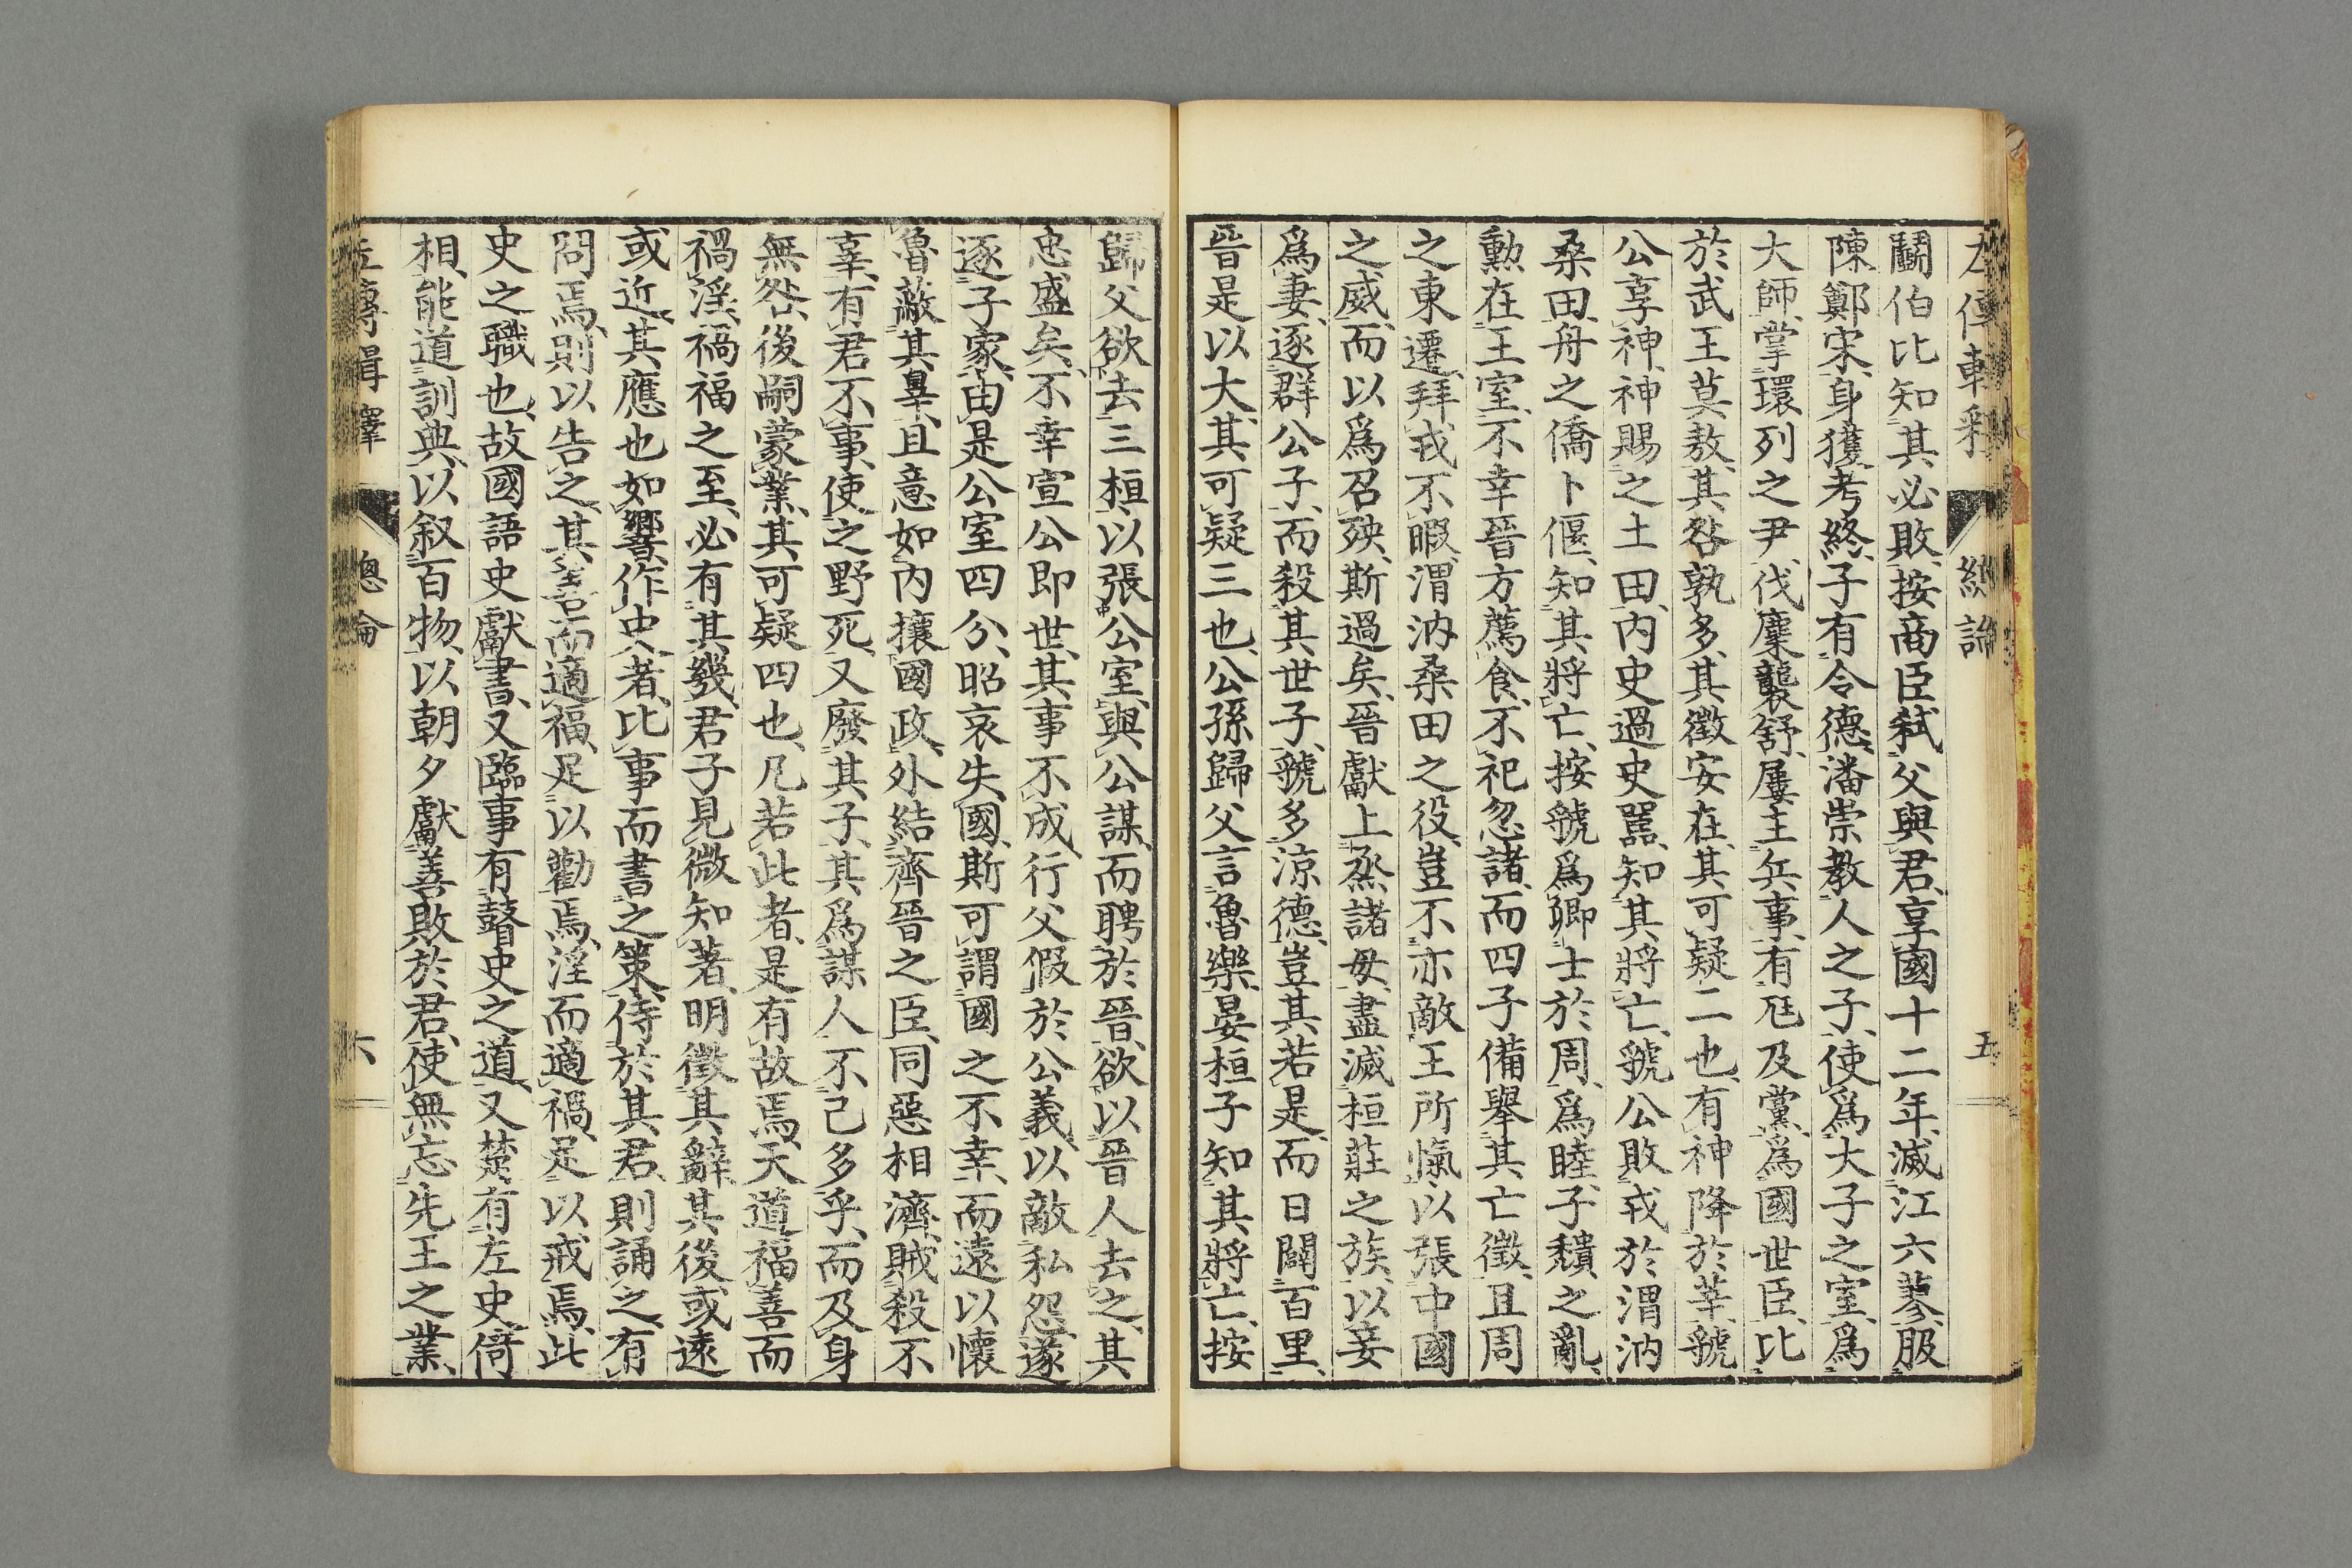 左傳輯釋 總論 五
鬭伯比知其必敗、按商臣弑父與君、享國十二年、滅江六蓼、服
陳鄭宋、身獲考終、子有令德、潘崇教人之子、使爲大子之室、爲
大師、掌環列之尹、伐麇襲舒、屢主兵事、有尫及黨、爲國世臣、比
於武王莫敖、其咎孰多、其徵安在、其可疑二也、有神降於莘、虢
公享神、神賜之土田、内史過史嚚、知其將亡、虢公敗戎於渭汭
桑田、舟之僑卜偃、知其將亡、按虢爲卿士於周、爲睦、子頹之亂、
勳在王室、不幸晉方薦食、不祀忽諸、而四子備舉其亡徵、且周
之東遷、拜戎不暇、渭汭桑田之役、豈不亦敵王所愾、以張中國
之威、而以爲召殃、斯過矣、晉獻上烝諸母、盡滅桓莊之族、以妾
爲妻、逐群公子、而殺其世子、虢多涼德、豈其若是、而日闢百里、
晉是以大、其可疑三也、公孫歸父言魯樂、晏桓子知其將亡、按
歸父欲去三桓、以張公室、與公謀、而聘於晉、欲以晉人去之、其
忠盛矣、不幸宣公即世、其事不成、行父假於公義、以敵私怨、遂
逐子家、由是公室四分、昭哀失國、斯可謂國之不幸、而遠以懷
魯蔽其辠、且意如内攘國政、外結齊晉之臣、同惡相濟、賊殺不
辜、有君不事、使之野死、又廢其子、其爲謀人不己多乎、而及身
無咎、後嗣蒙業、其可疑四也、凡若此者、是有故焉、天道福善而
禍淫、禍福之至、必有其幾、君子見微知著、明徵其辭、其後或遠
或近、其應也如響、作史者、比事而書之策、侍於其君、則誦之、有
問焉、則以告之、其善而適福、足以勸焉、淫而適禍、足以戒焉、此
史之職也、故國語史獻書、又臨事有瞽史之道、又楚有左史倚
相、能道訓典、以叙百物、以朝夕獻善敗於君、使無忘先王之業、
左傳輯釋 總論 六